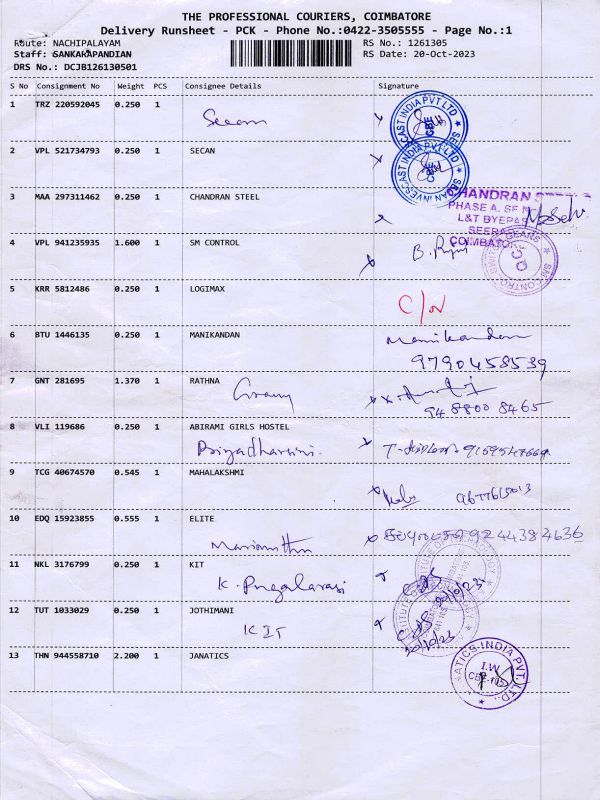 THE PROFESSIONAL COURIERS, COIMBATORE
Delivery Runsheet - PCK - Phone No.:0422-3505555 - Page No.:1
Route: NACHIPALAYAM RS No.: 1261305
Staff: SANKARAPANDIAN RS Date: 20-Oct-2023
DRS No.: DCJB126130501
S No Consignment No Weight PCS Consignee Details Signature
1 TRZ 220592045 0.250 1
Secan
2 VPL 521734793 0.250 1 SECAN
3 MAA 297311462 0.250 1 CHANDRAN STEEL
CHANDRAN
PHASE A,
L&T BYEPAS
4 VPL 941235935 1.600 1 SM CONTROL
COIMBATOR
5 KRR 5812486 0.250 1 LOGIMAX
6 BTU 1446135 0.250 1 MANIKANDAN Manikandan
9790458539
7 GNT 281695 1.370 1 RATHNA
94 8800 8465
8 VLI 119686 0.250 1 ABIRAMI GIRLS HOSTEL
Priyadharsini.
9 TCG 40674570 0.545 1 MAHALAKSHMI
10 EDQ 15923855 0.555 1 ELITE
9244384636
11 NKL 3176799 0.250 1 KIT
K. Pugalarasi
12 TUT 1033029 0.250 1 JOTHIMANI
KIT
13 THN 944558710 2.200 1 JANATICS